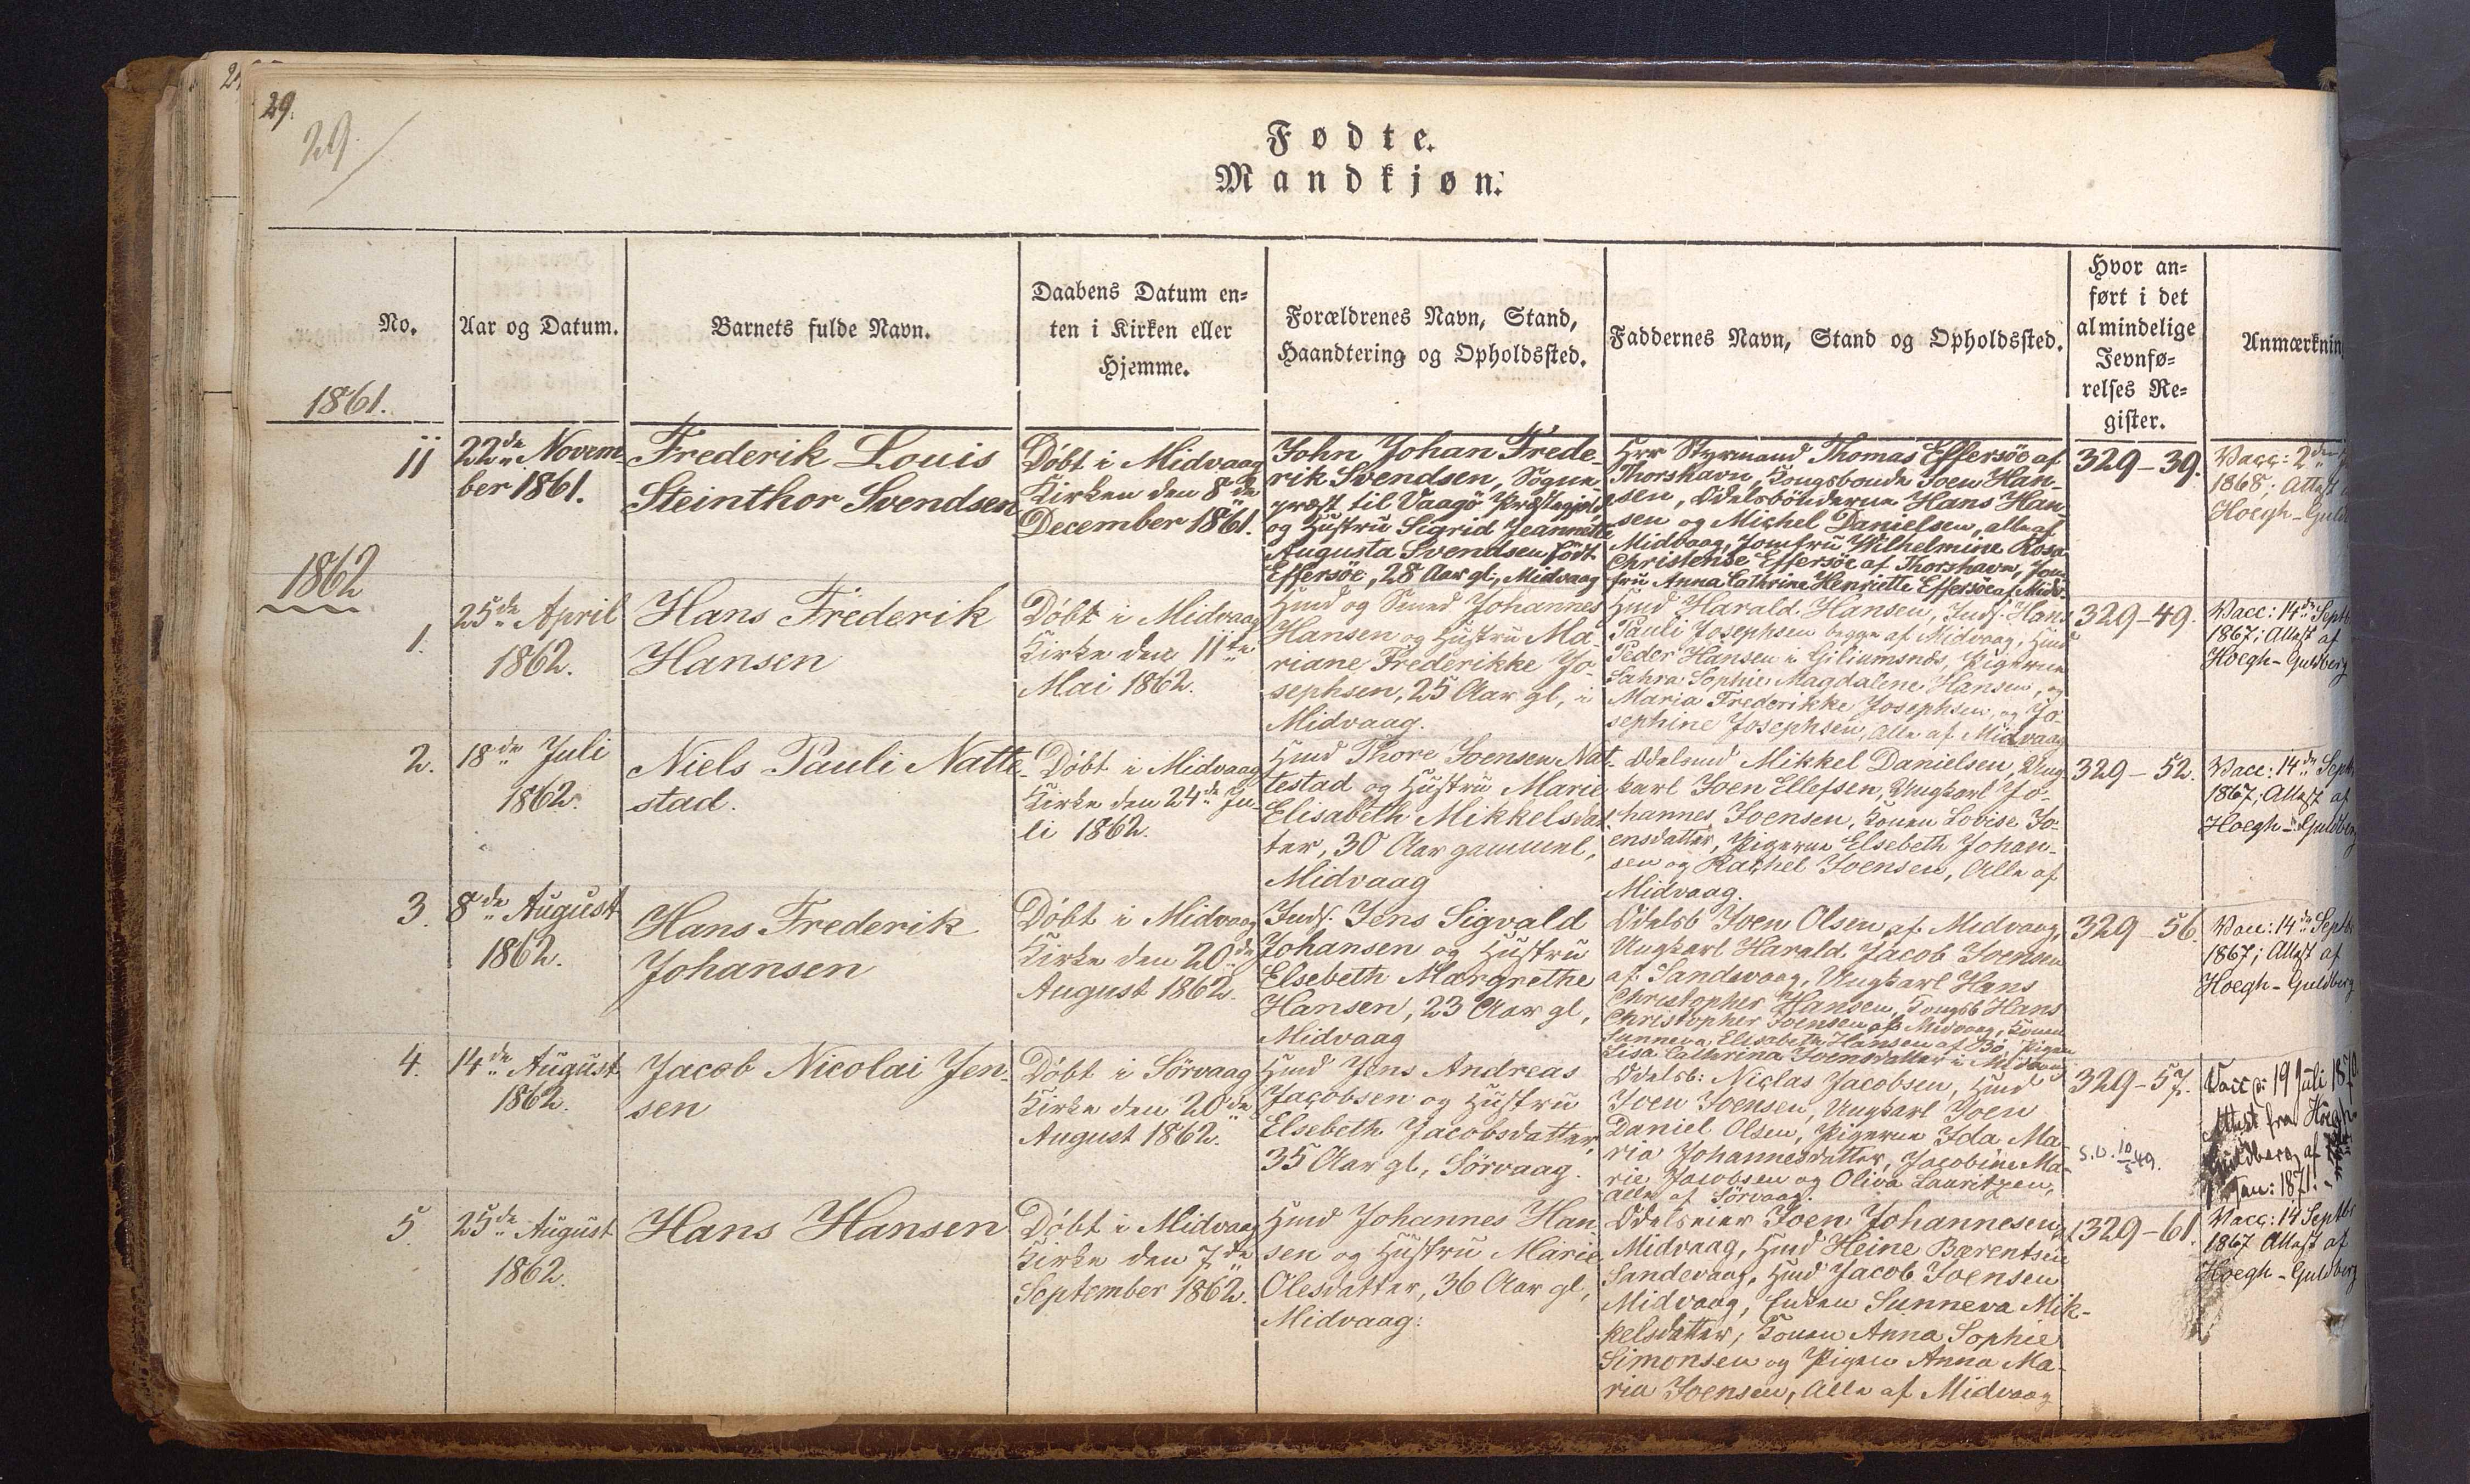 29.
29
Fødte.
Mandkjøn.
No.
Aar og Datum.
Barnets fulde Navn.
Daabens Datum en-
ten i Kirken eller
Hjemme.
Forældrenes Navn, Stand,
Haandtering og Opholdssted.
Faddernes Navn, Stand og Opholdssted.
Hvor an-
ført i det
almindelige
Jevnfø-
relses Re-
gister.
Anmærknin
1861.
11
22de Novem-
ber 1861.
Frederik Louis
Steinthor Svendsen
Døbt i Midvaag
Kirken den 8de
December 1861.
John Johan Frede-
rik Svendsen, Sogne
præst til Vaagø Præstegjeld
og Hustru Sigrid Jeannette
Augusta Svendsen født
Effersöe, 28 Aar gl., Midvaag
Hrr Styrmand Thomas Effersöe af
Thorshavn, Kongsbonde Joen Han-
sen, Odelsbönderne Hans Han-
sen og Michel Danielsen, alle af
Midvaag, Jomfru Wilhelmine Rosa
Christense Effersöe af Thorshavn, Jom
fru Anna Cathrine Henriette Effersöe af Midv.
329-39.
Vacc: 2den
1868; Attest
Hoegh-Guld
1862
1.
25de April
1862.
Hans Frederik
Hansen
Døbt i Midvaag
Kirke den 11te
Mai 1862.
Hmd og Smed Johannes
Hansen og Hustru Ma-
riane Frederikke Jo-
sephsen, 25 Aar gl, i
Midvaag.
Hmd Harald Hansen, Inds. Hans
Pauli Josephsen begge af Midvaag, Hmd
Peder Hansen i Giliumsnæs, Pigerne
Sahra Sophie Magdalene Hansen, og
Maria Frederikke Josephsen, og Jo-
sephine Josephsen, Alle af Midvaag
329-49.
Vacc: 14de Septb
1867; Attest af
Hoegh-Guldberg
2.
18de Juli
1862.
Niels Pauli Natte-
stad.
Døbt i Midvaag
Kirke den 24de Ju-
li 1862.
Hmd Thore Joensen Nat-
testad og Hustru Marie
Elisabeth Mikkelsdat
ter, 30 Aar gammel,
Midvaag
Odelsmd Mikkel Danielsen, Ung-
karl Joen Ellefsen, Ungkarl Jo-
hannes Joensen, Konen Lovise Jo-
ensdatter, Pigerne Elsebeth Johan-
sen og Rachel Joensen, Alle af
Midvaag.
329-52.
Vacc: 14de Septb
1867; Attest af
Hoegh-Guldberg
3.
8de August
1862.
Hans Frederik
Johansen
Døbt i Midvaag
Kirke den 20de
August 1862.
Inds. Jens Sigvald
Johansen og Hustru
Elsebeth Margrethe
Hansen, 23 Aar gl,
Midvaag
Odelsb Joen Olsen af Midvaag,
Ungkarl Harald Jacob Joensen
af Sandevaag, Ungkarl Hans
Christopher Hansen, Kongsb Hans
Christopher Joensen af Midvaag, Konen
Sunneva Elisabeth Hansen af Bö, Pigen
Lisa Cathrina Joensdatter i Midvaag
329-56.
Vacc: 14de Septb
1867; Attest af
Hoegh-Guldberg
4.
14de August
1862.
Jacob Nicolai Jen-
sen
Døbt i Sörvaag
Kirke den 20de
August 1862.
Hmd Jens Andreas
Jacobsen og Hustru
Elsebeth Jacobsdatter,
35 Aar gl, Sörvaag.
Odelsb: Niclas Jacobsen, Hmd
Joen Joensen, Ungkarl Joen
Daniel Olsen, Pigerne Ida Ma-
ria Johannesdatter, Jacobine Ma-
rie Jacobsen og Oliva Lauritzen,
Alle af Sörvaag.
329-57.
S.U. 10/5 49.
Vacc: 19 Juli 1870.
Attest fra Hoegh-
Guldberg af
Jan: 1871.
5.
25de August
1862.
Hans Hansen
Døbt i Midvaag
Kirke den 7de
September 1862.
Hmd Johannes Han
sen og Hustru Marie
Olesdatter, 36 Aar gl,
Midvaag.
Odelseier Joen Johannesen,
Midvaag, Hmd Heine Barentsen
Sandevaag, Hmd Jacob Joensen
Midvaag, Enken Sunneva Mik-
kelsdatter, Konen Anna Sophie
Simonsen og Pigen Anna Ma-
ria Joensen, Alle af Midvaag
329-61.
Vacc: 14 Septb
1867 Attest af
Hoegh-Guldberg